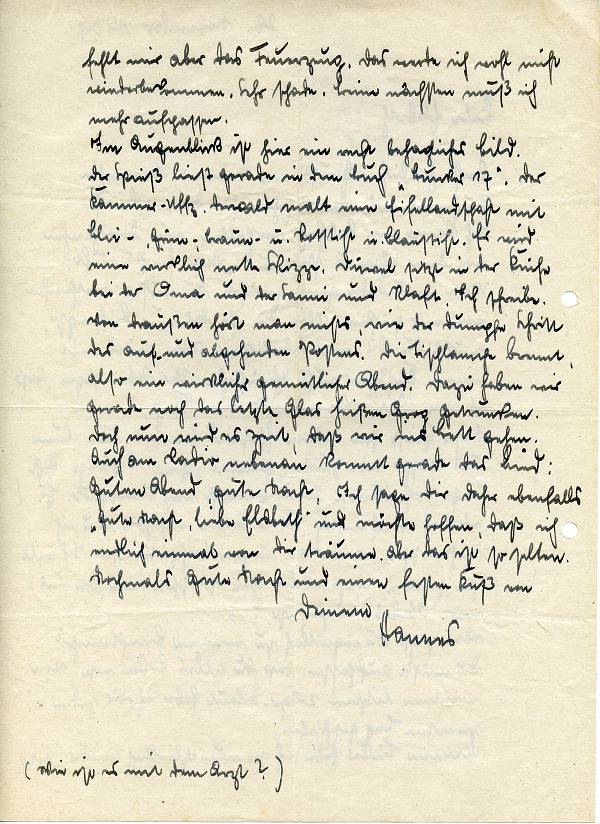 fehlt mir aber das Feuerzeug. Das werde ich wohl nicht
wiederbekommen. Sehr schade. Beim nächsten muß ich
mehr aufpassen.
Im Augenblick ist hier ein recht behagliches Bild.
Der Spieß liest gerade in dem Buch „Bunker 17". Der
Kammer-Uffz. malt eine Eifellandschaft mit
Blei-, Grün-, Braun- u. Rotstift u. Blaustift. Es wird
eine wirklich nette Skizze. Düwel sitzt in der Küche
bei der Oma und der Sanni und . Ich schreibe.
Von draußen hört man nichts, wie der dumpfe Schritt
des auf- und abgehenden Postens. Die Tischlampe brennt,
also ein wirklicher gemütlicher Abend. Dazu haben wir
gerade noch das letzte Glas heißen Grog getrunken.
Doch nun wird es Zeit, daß wir ins Bett gehen.
Auch am Radio nebenan kommt gerade das Lied:
Guten Abend, gute Nacht. Ich sage Dir daher ebenfalls
„Gute Nacht, liebe Elsbeth" und möchte hoffen, daß ich
endlich einmal von Dir träume. Aber das ist so selten.
Nochmals Gute Nacht und einen festen Kuß von
Deinem
Hannes
(Wie ist es mit dem Arzt?)